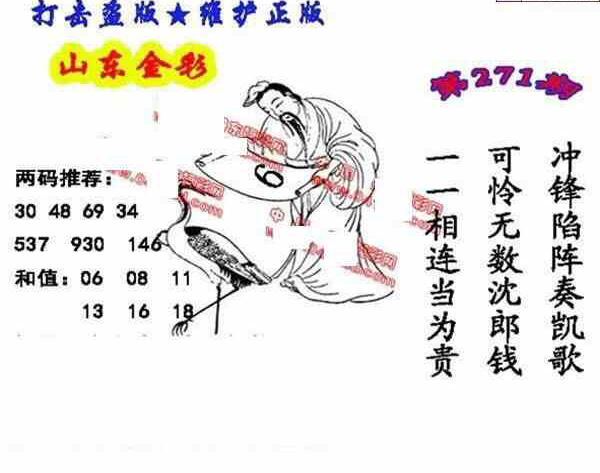 打击盗版★维护正版
山东金彩
第271期
冲锋陷阵奏凯歌
可怜无数沈郎钱
一一相连当为贵
6
两码推荐：
30 48 69 34
537 930 146
和值：06 08 11
13 16 18